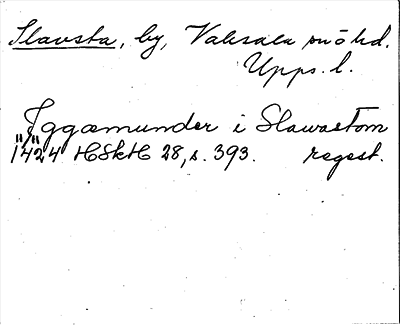 Slavsta, by, Vaksala sn o hd.
Upps. l.
"Iggæmunder i Slawastom"
1424 HSkH 28, s. 393. regest.